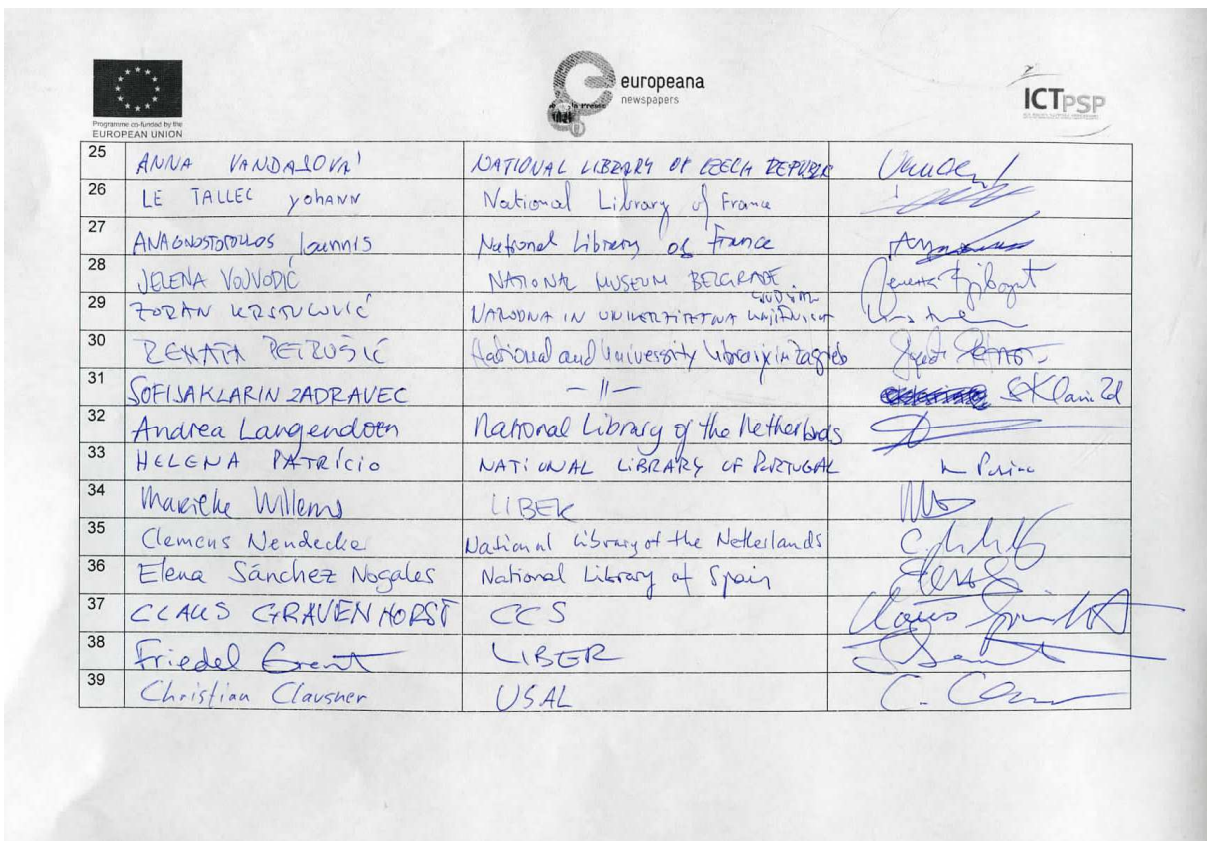 europeana
newspapers
Programme co-funded by the
EUROPEAN UNION
ICTPSP
25 ANNA VANDASOVÁ NATIONAL LIBRARY OF CZECH REPUBLIC
26 LE TALLEC YOHANN National Library of France
27 ANAGNOSTOPOULOS Ioannis National Library of France
28 JELENA VOJVODIĆ NATIONAL MUSEUM BELGRADE
29 ZORAN KRSTULOVIĆ NARODNA IN UNIVERZITETNA
30 RENATA PETRUŠIĆ National and University Library in Zagreb
31 SOFIJA KLARIN ZADRAVEC —||—
32 Andrea Langendoen National Library of the Netherlands
33 HELENA PATRÍCIO NATIONAL LIBRARY OF PORTUGAL
34 Marieke Willems LIBER
35 Clemens Neudecker National Library of the Netherlands
36 Elena Sánchez Nogales National Library of Spain
37 CLAUS GRAVENHORST CCS
38 Friedel Grant LIBER
39 Christian Clausner USAL